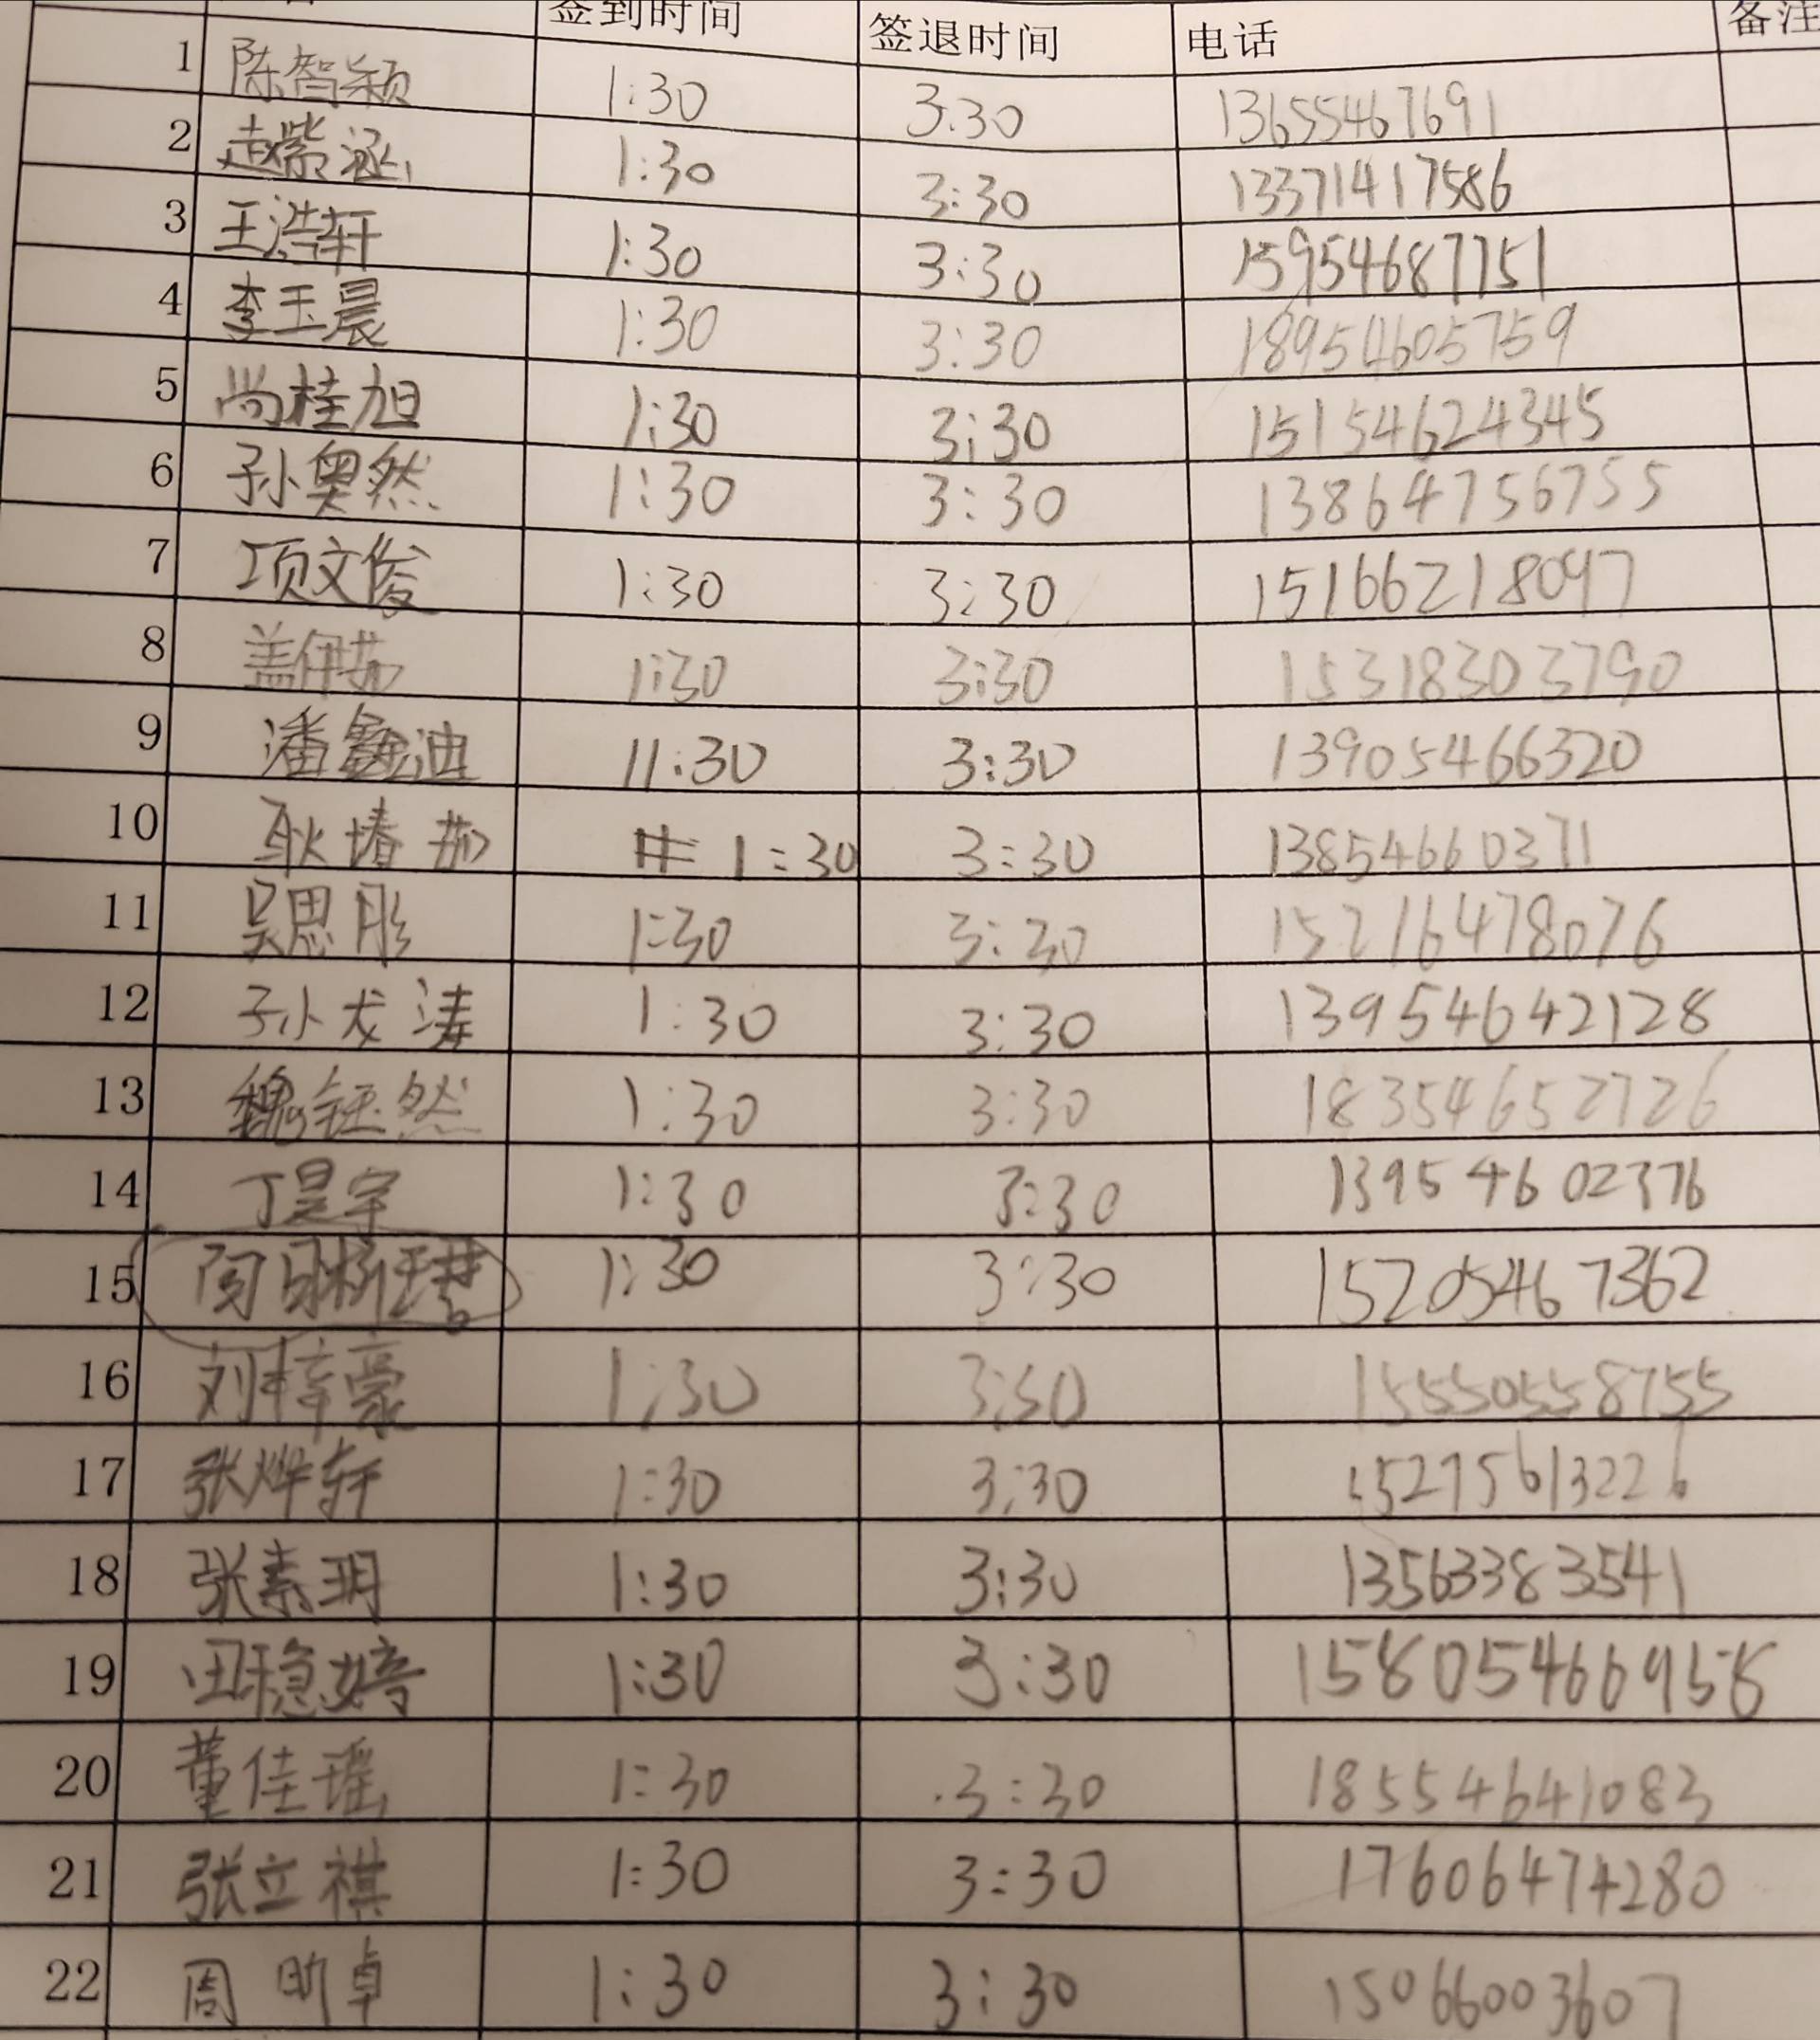 签到时间 签退时间 电话 备注
1 陈智颖 1:30 3:30 13655467691
2 赵紫涵 1:30 3:30 13371417586
3 王浩轩 1:30 3:30 15954687751
4 李玉晨 1:30 3:30 18954605759
5 尚桂旭 1:30 3:30 15154624345
6 孙奥然 1:30 3:30 13864756755
7 项文俊 1:30 3:30 15166218097
8 盖伊茹 1:30 3:30 15318303790
9 潘鑫迪 11:30 3:30 13905466320
10 耿堉茹 1:30 3:30 13854660371
11 吴思彤 1:30 3:30 15216478076
12 孙龙涛 1:30 3:30 13954642128
13 魏钰然 1:30 3:30 18354652726
14 丁昊宇 1:30 3:30 13954602376
15 1:30 3:30 15205467362
16 刘梓豪 1:30 3:30 15550558755
17 张烨轩 1:30 3:30 15275613226
18 张素玥 1:30 3:30 13563383541
19 田稳婷 1:30 3:30 15805466958
20 董佳瑶 1:30 3:30 18554641083
21 张立祺 1:30 3:30 17606474280
22 周昀卓 1:30 3:30 15066003607